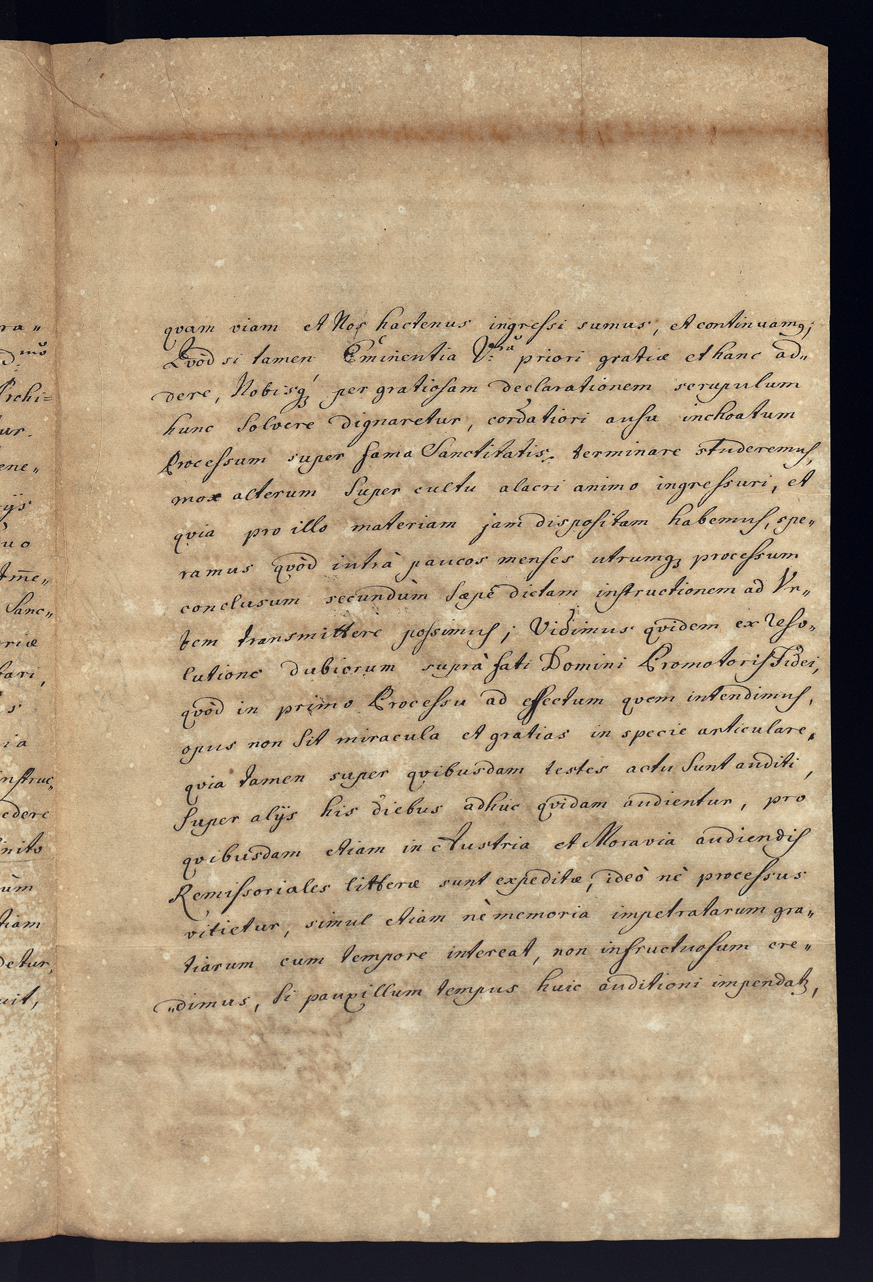 quam viam et Nos hactenus ingressi sumus, et continuamq;
Quòd si tamen Eminentia V.ra priori gratiæ et hanc ad„
dere, Nobisq; per gratiosam declarationem scrupulum
hunc solvere dignaretur, cordatiori ausu inchoatum
Processum super fama Sanctitatis terminare studeremus,
mox alterum super cultu alacri animo ingressuri, et
qvia pro illo materiam jam dispositam habemus, spe„
ramus quòd intrà paucos menses utrumq; processum
conclusum secundùm sæpè dictam instructionem ad Vr„
bem transmittere possimus; Vidimus qvidem ex reso„
lutione dubiorum suprà fati Domini Promotoris Fidei,
quòd in primo Processu ad effectum quem intendimus,
opus non sit miracula et gratias in specie articulare,
qvia tamen super qvibusdam testes actu sunt auditi,
super alijs his diebus adhuc qvidam audientur, pro
qvibusdam etiam in Austria et Moravia audiendis
Remissoriales litteræ sunt expeditæ, ideò nè processus
vitietur, simul etiam nè memoria impetratarum gra„
tiarum cum tempore intereat, non infructuosum cre„
„dimus, si pauxillum tempus huic auditioni impendatq,
ra„
D.mus
Archi=
tur.
ene„
ijs
uo
Ame„
Sanc„
oriæ
fari,
s
ia
instruc„
edere
nito
ùm
tiam
detur,
uit,